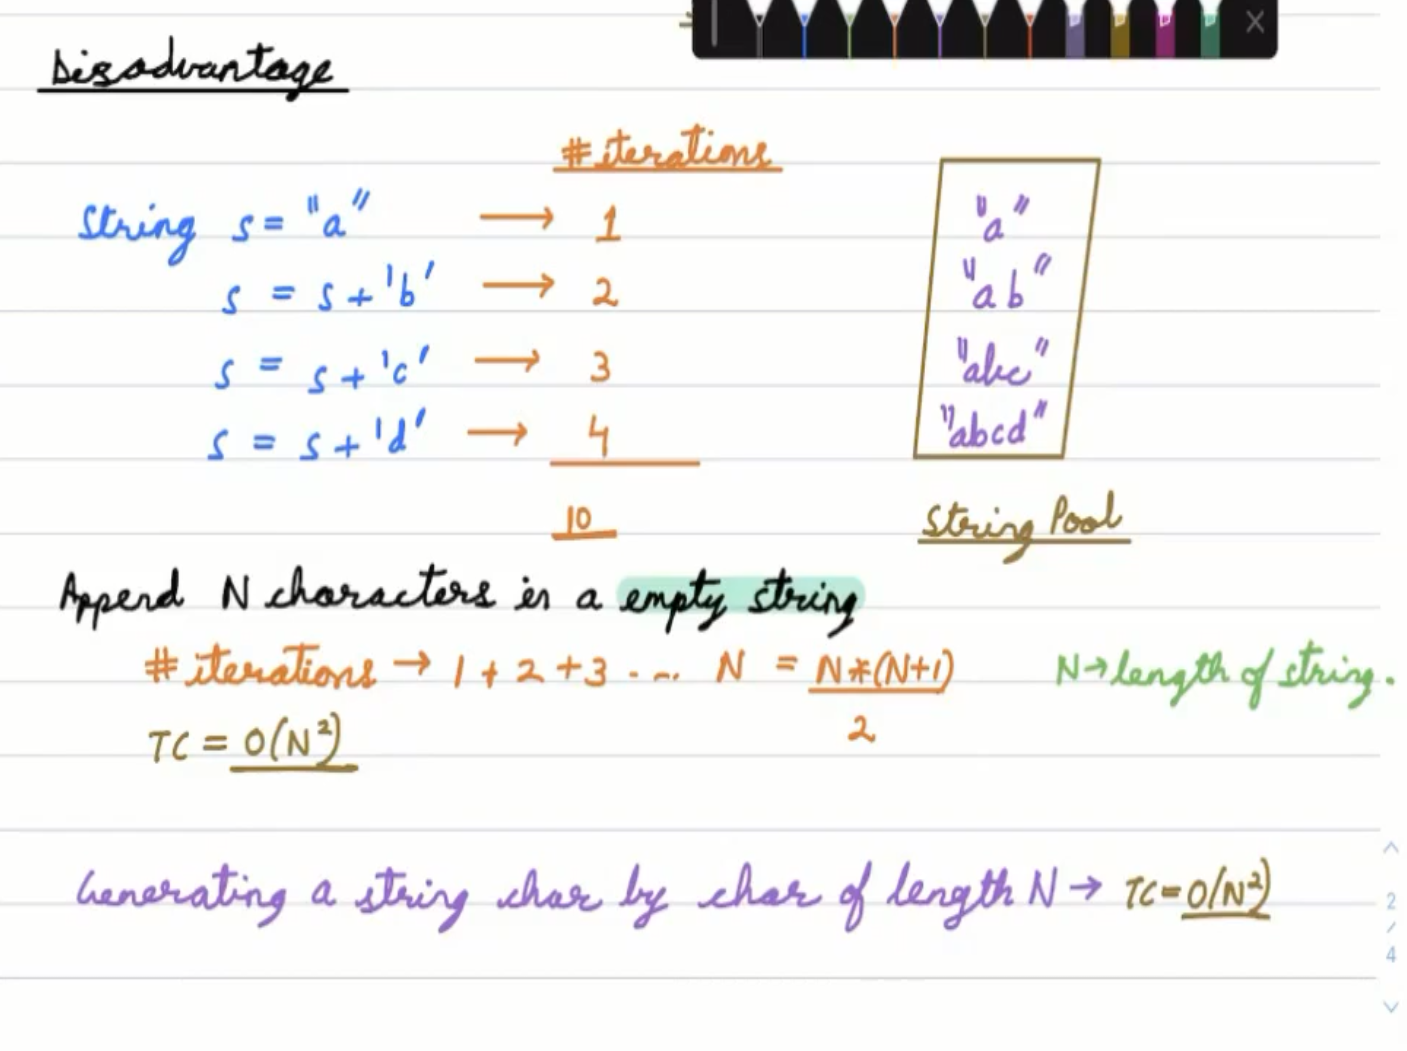 Disadvantage
# iterations
String s = "a" → 1
s = s + 'b' → 2
s = s + 'c' → 3
s = s + 'd' → 4
10
"a"
"ab"
"abc"
"abcd"
String Pool
Append N characters in a empty string
# iterations → 1 + 2 + 3 - - . N = N*(N+1)
2
N → length of string.
TC = O(N²)
Generating a string char by char of length N → TC = O(N²)
2
/
4